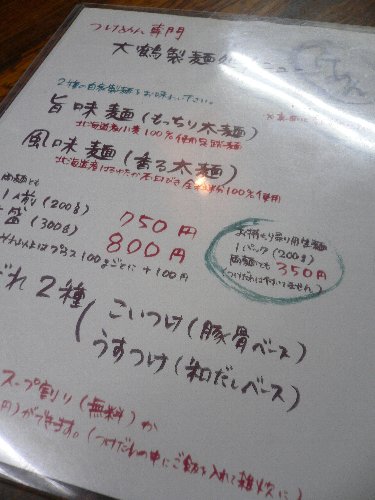 つけめん専門
大鶴製麺処 メニュー
2種の自家製麺をお味わい下さい。
旨味麺(もっちり太麺)
北海道産小麦100%使用
風味麺(香る太麺)
北海道産 石臼びき全粒粉100%使用
両麺とも
1人前(200g) 750円
盛(300g) 800円
プラス100gごとに +100円
お持ち帰り用生麺
1パック(200g)
両麺とも350円
(つけだれは付いてません)
だれ2種
こいつけ(豚骨ベース)
うすつけ(和だしベース)
スープ割り(無料)か
円)ができます。(つけだれの中にご飯を入れて雑炊に)